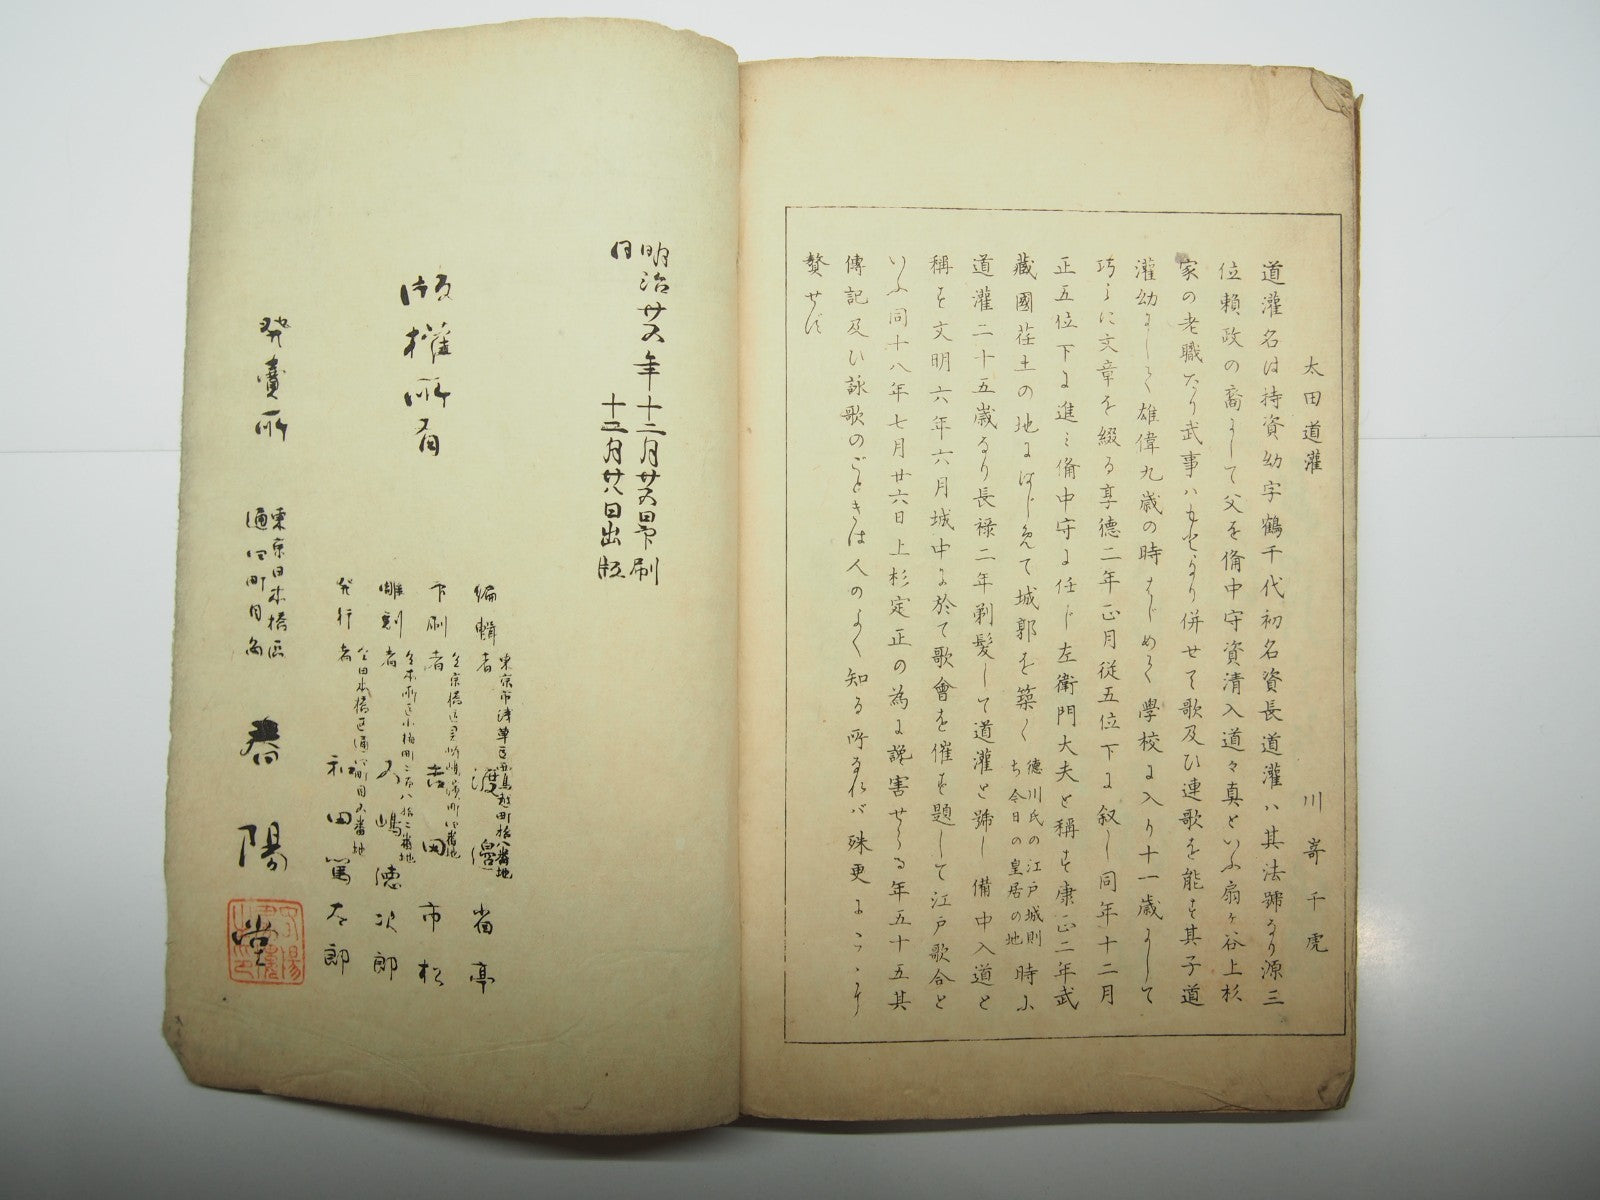 太田道灌
川嵜千虎
道灌名は持資幼字鶴千代初名資長道灌ハ其法號なり源三
位頼政の裔にして父を備中守資清入道々真といふ扇ヶ谷上杉
家の老職たり武事ハもとより併せて歌及ひ連歌を能す其子道
灌幼にして雄偉九歳の時はじめて學校に入り十一歳にして
巧に文章を綴る享徳二年正月従五位下に叙し同年十二月
正五位下に進み備中守に任じ左衛門大夫と稱す康正二年武
藏國荏土の地にはじめて城郭を築く
徳川氏の江戸城則
ち今日の皇居の地
時に
道灌二十五歳なり長禄二年剃髪して道灌と號し備中入道と
稱す文明六年六月城中に於て歌會を催す題して江戸歌合と
いふ同十八年七月廿六日上杉定正の為に讒害せらる年五十五其
傳記及ひ詠歌のごときは人のよく知る所なれバ殊更にこゝに
贅せず
明治廿五年十二月廿五日印刷
同
十二月廿八日出版
版權所有
編輯者
東京市浅草區
渡邉省亭
印刷者
吉田市松
雕刻者
五嶋徳次郎
発行者
仝日本橋區通四町目五番地
和田篤太郎
発賣所
東京日本橋区
通四町目
春陽堂